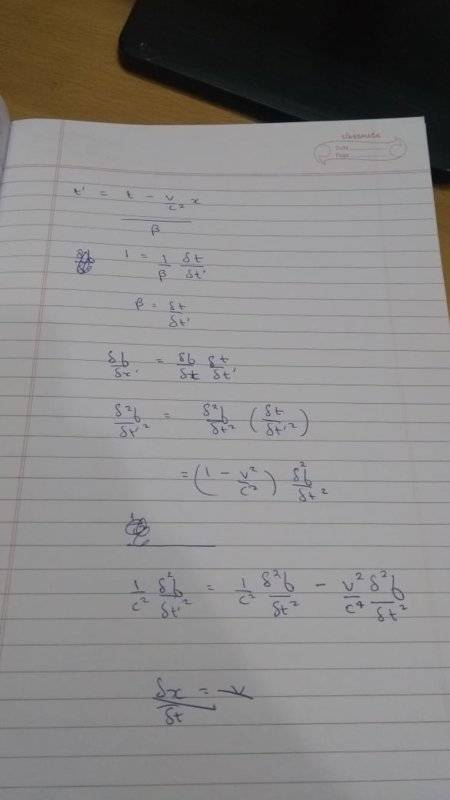 classmate
Date
Page
t' = t - v/c² x
β
1 = 1/β δt/δt'
β = δt/δt'
δb/δx' = δb/δt δt/δt'
δ²b/δt'² = δ²b/δt² (δt/δt'²)
= (1 - v²/c²) δ²b/δt²
1/c² δ²b/δt'² = 1/c² δ²b/δt² - v²/c⁴ δ²b/δt²
δx/δt = -v